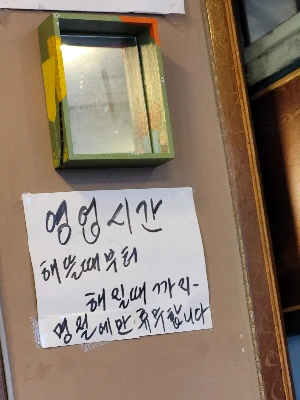 영업시간
해뜰때부터
해질때 까지~
명절에만 휴무합니다